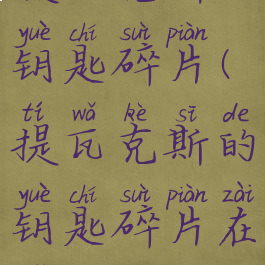 yuè chí suì piàn
钥匙碎片(
tí wǎ kè sī de
提瓦克斯的
yuè chí suì piàn zài
钥匙碎片在